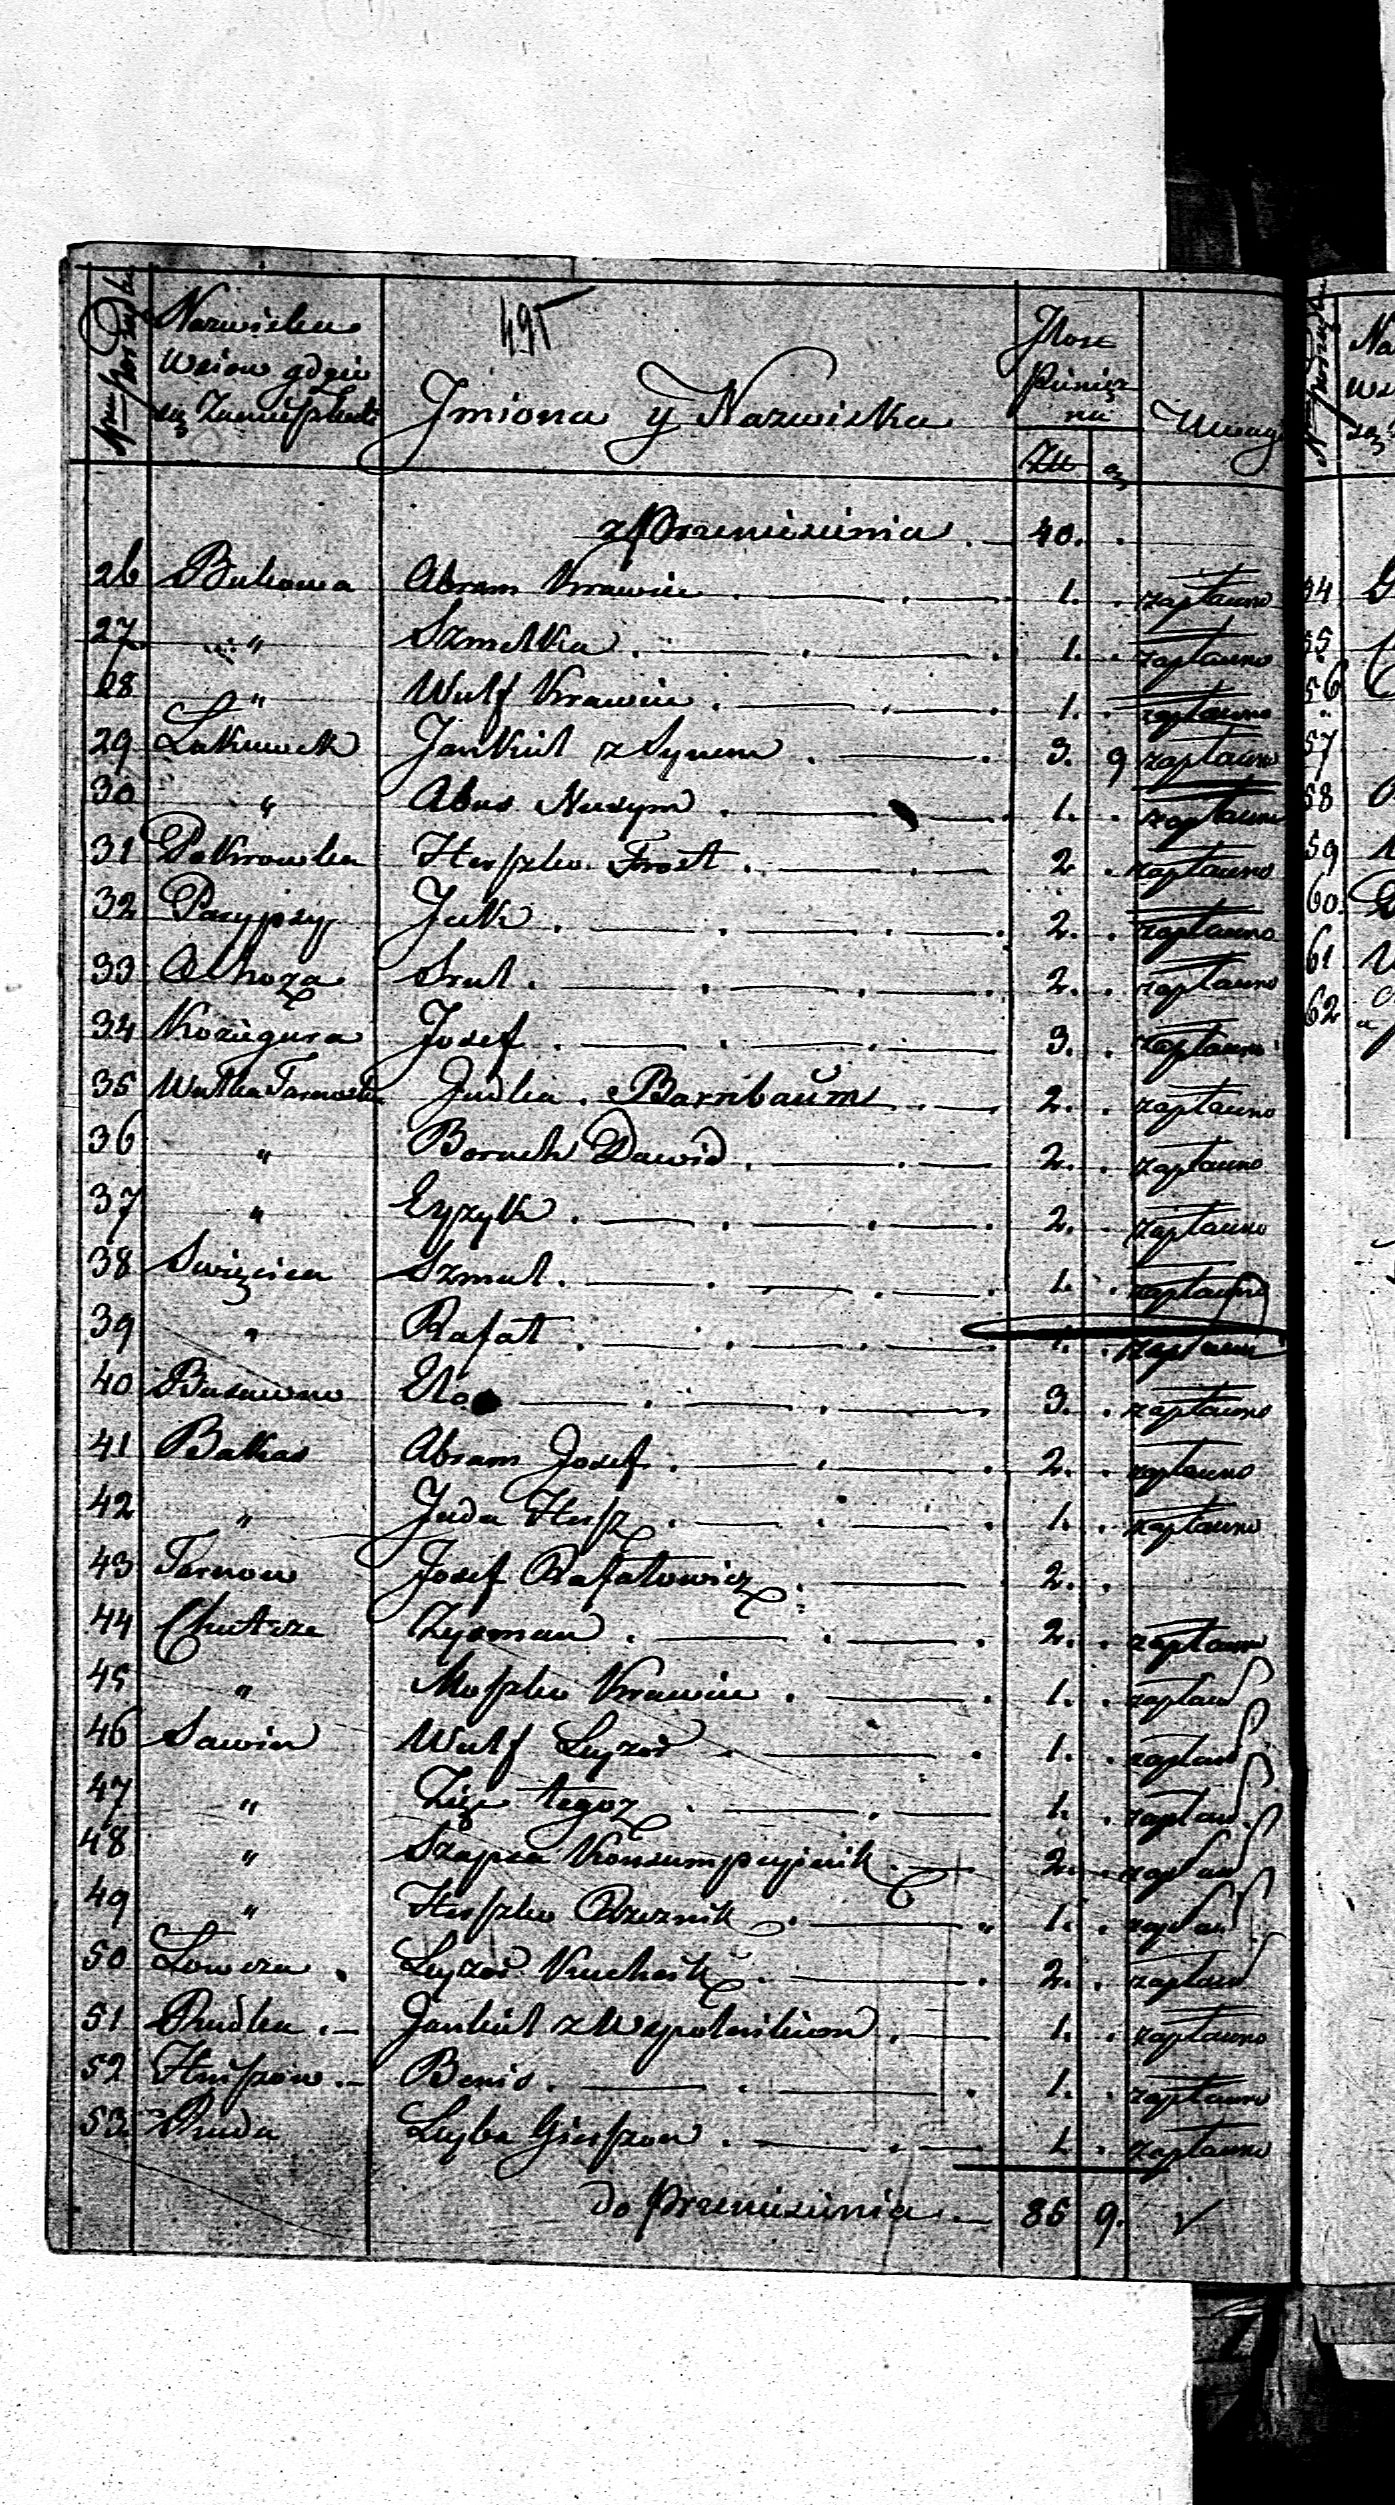 Num: Porządk:
Nazwiska
Wsiow gdzie
są Zamieszkali
495
Jmiona y Nazwiska
Jlosc
Pienięż
na
Złł gr
Uwagi
z Przeniesienia 40.
26 Bukowa Abram Krawiec 1. zapłacono
27 " Szmelka 1. zapłacono
28 " Wulf Krawiec 1. zapłacono
29 Lukuwek Jankiel z Synem 3. 9 zapłacono
30 " Abus Nusym 1. zapłacono
31 Pokrowka Herszko Frost 2 zapłacono
32 Parypsy Jcek 2. zapłacono
33 Alhoza Srul 2. zapłacono
34 Koziegura Josef 3. zapłacono
35 Wulka Tarnowska Judka Barnbaum 2. zapłacono
36 " Boruch Dawid 2. zapłacono
37 " Eyzyk 2. zapłacono
38 Swięcica Szmul 1. zapłacono
39 " Rafał 1. zapłacono
40 Busuwno 3. zapłacono
41 Bakus Abram Josef 2. zapłacono
42 " Juda Hersz 1. zapłacono
43 Tarnow Josef Rafałowicz 2.
44 Chutcze Zysman 2. zapłacono
45 " Moszko Krawiec 1. zapłaco
46 Sawin Wulf Leyzor 1. zapłaco
47 " Zięć tegoż 1. zapłaco
48 " Szapsa Konsumpcyjnik 2. zapłaco
49 " Herszko Rzeznik 1. zapłaco
50 Łowcza Leyzor Kucharz 2. zapłaco
51 Rudka Jankiel z Wspolnikiem 1. zapłacono
52 Hniszow Benis 1. zapłacono
53. Ruda Leyba Gierszon 1. zapłacono
do Przeniesienia 86 9.
54
55
56
57
58
59
60
61
62